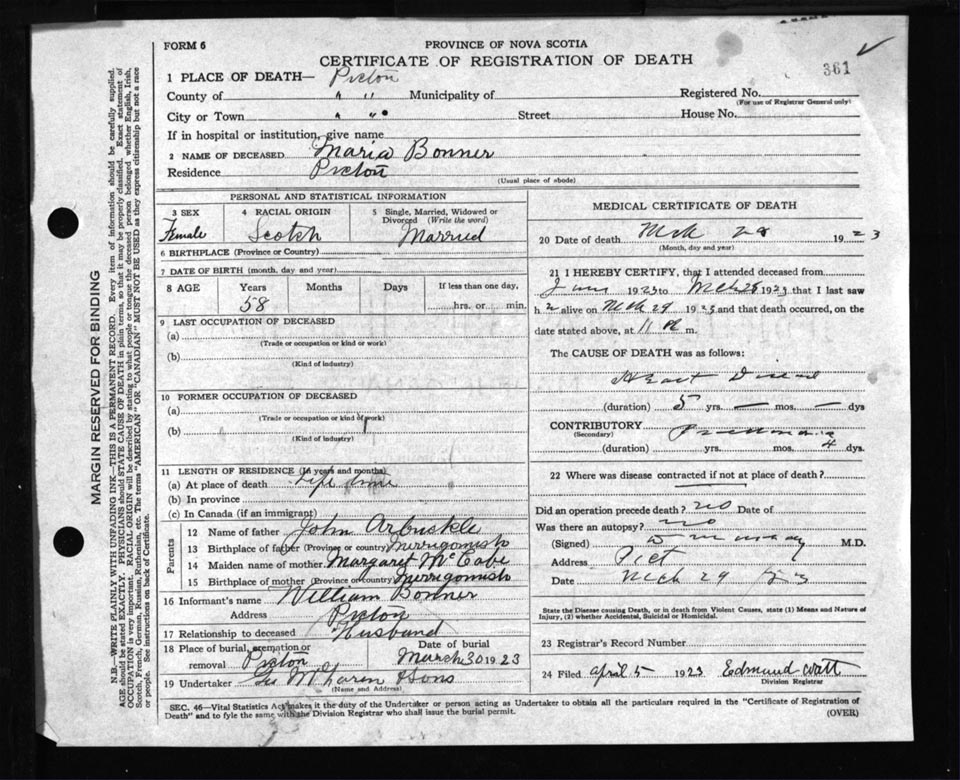 FORM 6
PROVINCE OF NOVA SCOTIA
CERTIFICATE OF REGISTRATION OF DEATH
361
1 PLACE OF DEATH— Pictou
County of " " Municipality of Registered No.
(For use of Registrar General only)
City or Town " " Street House No.
If in hospital or institution, give name
2 NAME OF DECEASED Maria Bonner
Residence Pictou
(Usual place of abode)
PERSONAL AND STATISTICAL INFORMATION
3 SEX Female
4 RACIAL ORIGIN Scotch
5 Single, Married, Widowed or Divorced (Write the word) Married
6 BIRTHPLACE (Province or Country)
7 DATE OF BIRTH (month, day and year)
8 AGE Years 58 Months Days If less than one day, hrs. or min.
9 LAST OCCUPATION OF DECEASED
(a)
(Trade or occupation or kind or work)
(b)
(Kind of industry)
10 FORMER OCCUPATION OF DECEASED
(a)
(Trade or occupation or kind of work)
(b)
(Kind of industry)
11 LENGTH OF RESIDENCE (In years and months)
(a) At place of death Life time
(b) In province
(c) In Canada (if an immigrant)
Parents
12 Name of father John Arbuckle
13 Birthplace of father (Province or country) Merrigomish
14 Maiden name of mother Margaret McCabe
15 Birthplace of mother (Province or country) Merrigomish
16 Informant's name William Bonner
Address Pictou
17 Relationship to deceased Husband
18 Place of burial, cremation or removal Pictou
Date of burial March 30 1923
19 Undertaker & Sons
(Name and Address)
MEDICAL CERTIFICATE OF DEATH
20 Date of death Mch 28 1923
(Month, day and year)
21 I HEREBY CERTIFY, that I attended deceased from
1923 to Mch 28 1923 that I last saw
h alive on Mch 1923 and that death occurred, on the
date stated above, at 11 m.
The CAUSE OF DEATH was as follows:
Heart Disease
(duration) 5 yrs. — mos. — dys
CONTRIBUTORY Pneumonia
(Secondary)
(duration) yrs. mos. 4 dys.
22 Where was disease contracted if not at place of death?
Did an operation precede death? no Date of
Was there an autopsy? no
(Signed) M.D.
Address Pict
Date Mch 29 23
State the Disease causing Death, or in death from Violent Causes, state (1) Means and Nature of
Injury, (2) whether Accidental, Suicidal or Homicidal.
23 Registrar's Record Number
24 Filed April 5 1923 Edmund Watt
Division Registrar
SEC. 46—Vital Statistics Act makes it the duty of the Undertaker or person acting as Undertaker to obtain all the particulars required in the "Certificate of Registration of
Death" and to fyle the same with the Division Registrar who shall issue the burial permit.
(OVER)
MARGIN RESERVED FOR BINDING
N.B.—WRITE PLAINLY WITH UNFADING INK—THIS IS A PERMANENT RECORD. Every item of information should be carefully supplied.
AGE should be stated EXACTLY. PHYSICIANS should STATE CAUSE OF DEATH in plain terms, so that it may be properly classified. Exact statement of
OCCUPATION is very important. RACIAL ORIGIN will be described by stating to what people or tongue the deceased person belonged whether English, Irish,
Scotch, French, German, Russian, Ruthenian, etc. The terms "AMERICAN" OR "CANADIAN" MUST NOT BE USED as they express citizenship but not a race
or people. See instructions on back of Certificate.